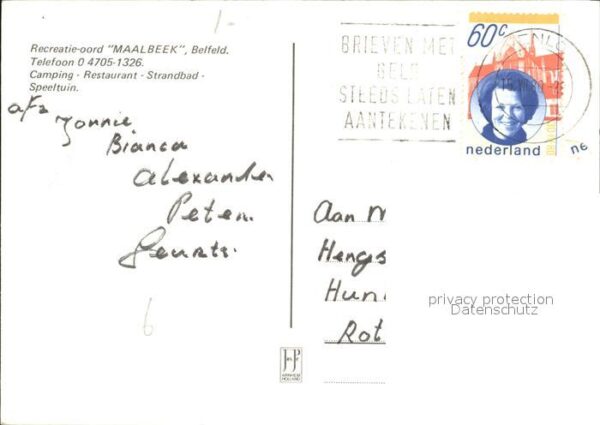 1-
Recreatie-oord "MAALBEEK", Belfeld.
Telefoon 0 4705-1326.
Camping - Restaurant - Strandbad -
Speeltuin.
afz
Jonnie
Bianca
Alexander
Peter
Geurts.
6
BRIEVEN MET
GELD
STEEDS LATEN
AANTEKENEN
60c
nederland
Aan M
Hengs
Hun
Rot
privacy protection
Datenschutz
JosP